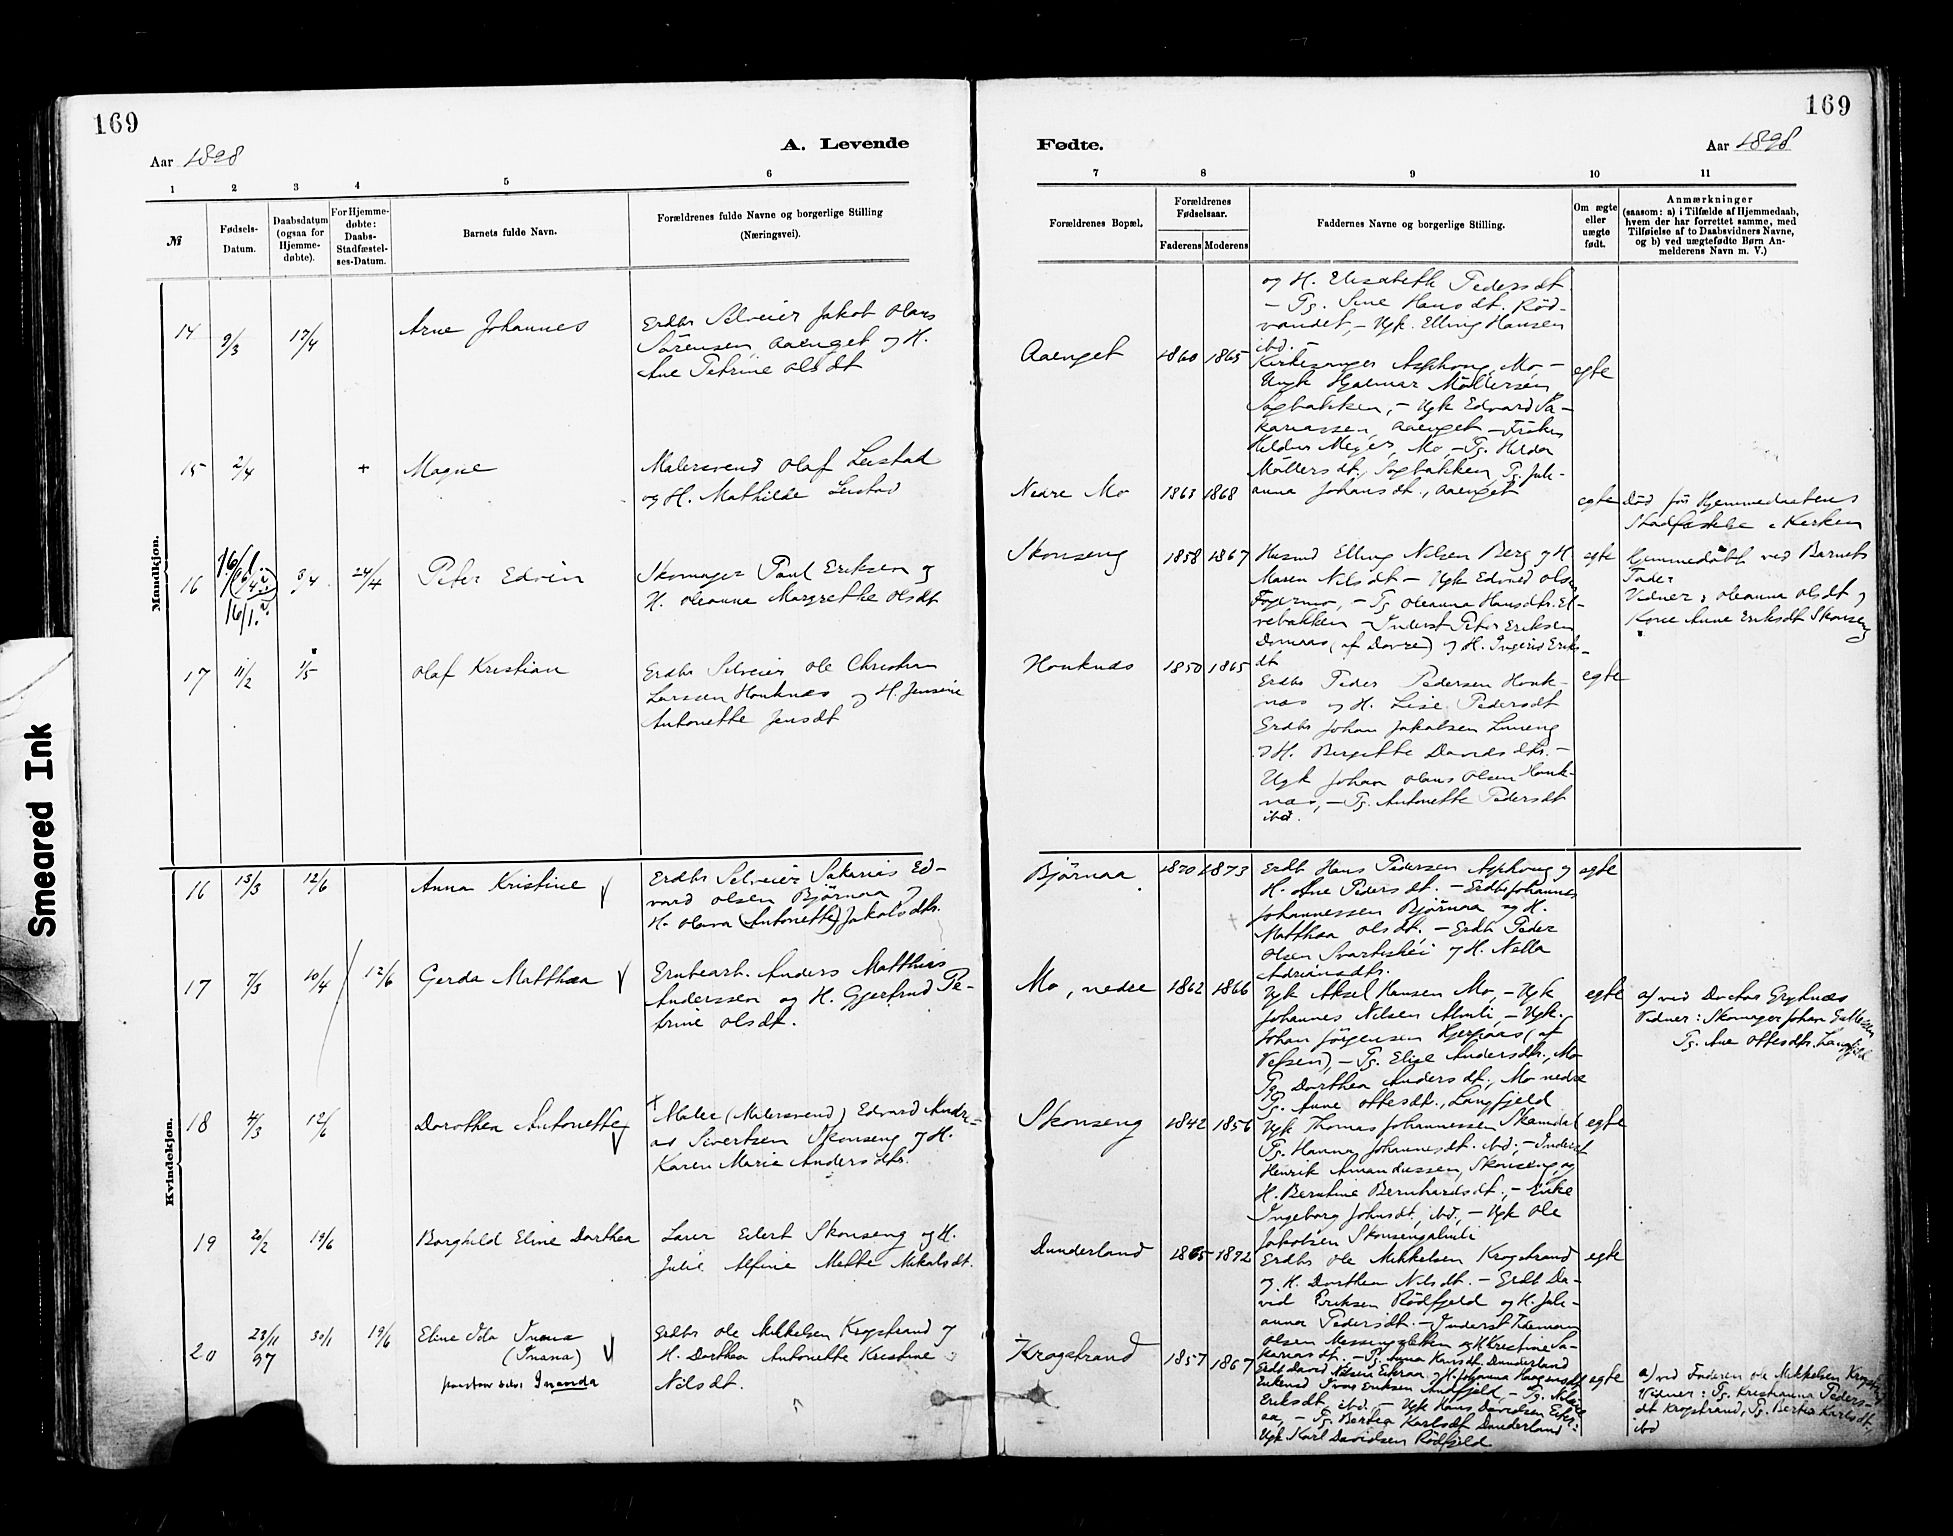 169
A. Levende
Aar 1898
1 2 3 4 5 6
№
Fødsels-
Datum.
Daabsdatum
(ogsaa for
Hjemme-
døbte).
For Hjemme-
døbte:
Daabs-
Stadfæstel-
ses-Datum.
Barnets fulde Navn.
Forældrenes fulde Navne og borgerlige Stilling
(Næringsvei).
Mandkjøn.
14 9/3 17/4
Arne Johannes
Erdbr Selveier Jakob Olaus
Sörensen Aaenget og H.
Ane Petrine Olsdt
15 2/4 +
Magne
Malersvend Olaf Leistad
og H. Mathilde Leistad
16
16/1.
3/4 24/4
Peter Edvin
Skomager Paul Eriksen og
H. Oleanna Margrethe Olsdt
17 11/2 1/5
Olaf Kristian
Erdbr Selveier Ole Christian
Larssen Honknæs og H. Jensine
Antonette Jensdt
Kvindekjøn.
16 13/3 12/6
Anna Kristine
Erdbr Selveier Sakarias Ed-
vard Olsen Bjørnaa og
H. Olava (Antonette) Jakobsdtr.
17 7/3 10/4 12/6
Gerda Matthea
Erubearb. Anders Matthias
Anderssen og H. Gjertrud Pe-
trine Olsdt.
18 4/3 12/6
Dorothea Antonette
Maler (Malersvend) Edvard Andre-
as Sivertsen Skonseng og H.
Karen Marie Andersdtr.
19 20/2 19/6
Borghild Eline Dorthea
Lärer Edert Skonseng og H.
Julie Alfine Mette Mikalsdt.
20 23/11 97 30/1 19/6
Eline Ida Inana
(Inana)
Inanda
Erdbr Ole Mikkelsen Krogstrand og
H. Dorthea Antonette Kristine
Nilsdt.
169
Fødte.
Aar 1898
7 8 9 10 11
Forældrenes Bopæl.
Forældrenes
Fødselsaar.
Faderens Moderens
Faddernes Navne og borgerlige Stilling.
Om ægte
eller
uægte
født.
Anmærkninger
(saasom: a) i Tilfælde af Hjemmedaab,
hvem der har forrettet samme, med
Tilføielse af to Daabsvidners Navne,
og b) ved uægtefødte Børn An-
melderens Navn m. V.)
og H. Elisabeth Pedersdt.
- Pg. Sine Hansdt. Röd-
vandet, - Ugk. Elling Hansen
ibd. -
Aaenget 1860 1865
Kirkesanger Asphong, Mo -
Ungk Hjalmar Möllersen
Sagbakken, - Ugk Edvard Sa-
kariassen, Aaenget - Fröken
Meyer, Mo, - Pg. Hilda
Möllersdt., Sagbakken, Pg. Juli-
anna Johansdt., Aaenget
egte
Nedre Mo 1863 1868
egte
Död för Hjemmedaabens
Stadfæstelse i Kirken
Skonseng 1858 1867
Husmd Elling Nilsen Berg og H.
Maren Nilsdt - Ugk Edvard Olsen
Fagermo, - Pg Oleanna Hansdtr. El-
vebakken - Inderst Peter Eriksen
Domaas (af Dovre) og H. Ingerid Eriks-
dt
egte
Hjemmedöbt ved Barnets
Fader
Vidner: Oleanna Olsdt og
Kone Anne Eriksdt Skonseng
Honknæs 1850 1865
Erdbr Peder Pedersen Honk-
næs og H. Lise Pedersdt
Erdbr Johan Jakobsen
og H. Bergitte Davidsdtr. -
Ugk Johan Olaus Olsen Honk-
næs, - Pg. Antonette Pedersdt
ibd.
egte
Bjørnaa 1870 1873
Erdb Hans Pedersen Asphong og
H. Ane Pedersdt. - Erdbr Johannes
Johannessen Bjørnaa og H.
Matthea Olsdt. - Erdb Peder
Olsen Svartishei og H. Nella
Adriansdtr.
egte
Mo, nedre 1862 1866
Ugk Aksel Hansen Mo, - Ugk
Johannes Nilsen Almli - Ugk.
Johan Jörgensen (af
Vefsen), - Pg. Elise Andersdtr., Mo
Pg Dorthea Andersdt., Mo nedre
Pg. Anne Ottesdt., Langfjeld
egte
a) ved Doctor
Vidner: Skomager Johan
Pg. Ane Ottesdtr. Langfjeld
Skonseng 1842 1856
Ugk Thomas Johannessen
Pg. Hanna Johannesdt. ibd, - Inderst
Henrik Amandussen, Skonseng, og
H. Berntine Bernhardsdt., - Enke
Ingeborg Johnsdt, ibd, - Ugk Ole
Jakobsen Skonsengalmli
egte
Dunderland 1865 1872
Erdbr Ole Mikkelsen Krogstrand
og H. Dorthea Nilsdt. - Erdb Da-
vid Eriksen Rödfjeld og H. Juli-
anna Pedersdt. - Inderst Tideman
Olsen Messingsletten og H Kristine Sa-
kariasdt. - Pg. Anna Hansdt. Dunderland
egte
Krogstrand 1857 1867
Erdb David Nilsen og H. Johanna Haagensdt
Iver Eriksen - Pg.
Eriksdt, ibd. - Ugk Hans Davidsen
- Pg. Bertea Karlsdt. Dunderland
Ugk Karl Davidsen Rödfjeld
egte
a) ved Faderen Ole Mikkelsen
Vidner: Pg. Kristianna Peders-
dt Krogstrand, Pg. Bertea Karlsdt
ibd
Smeared Ink